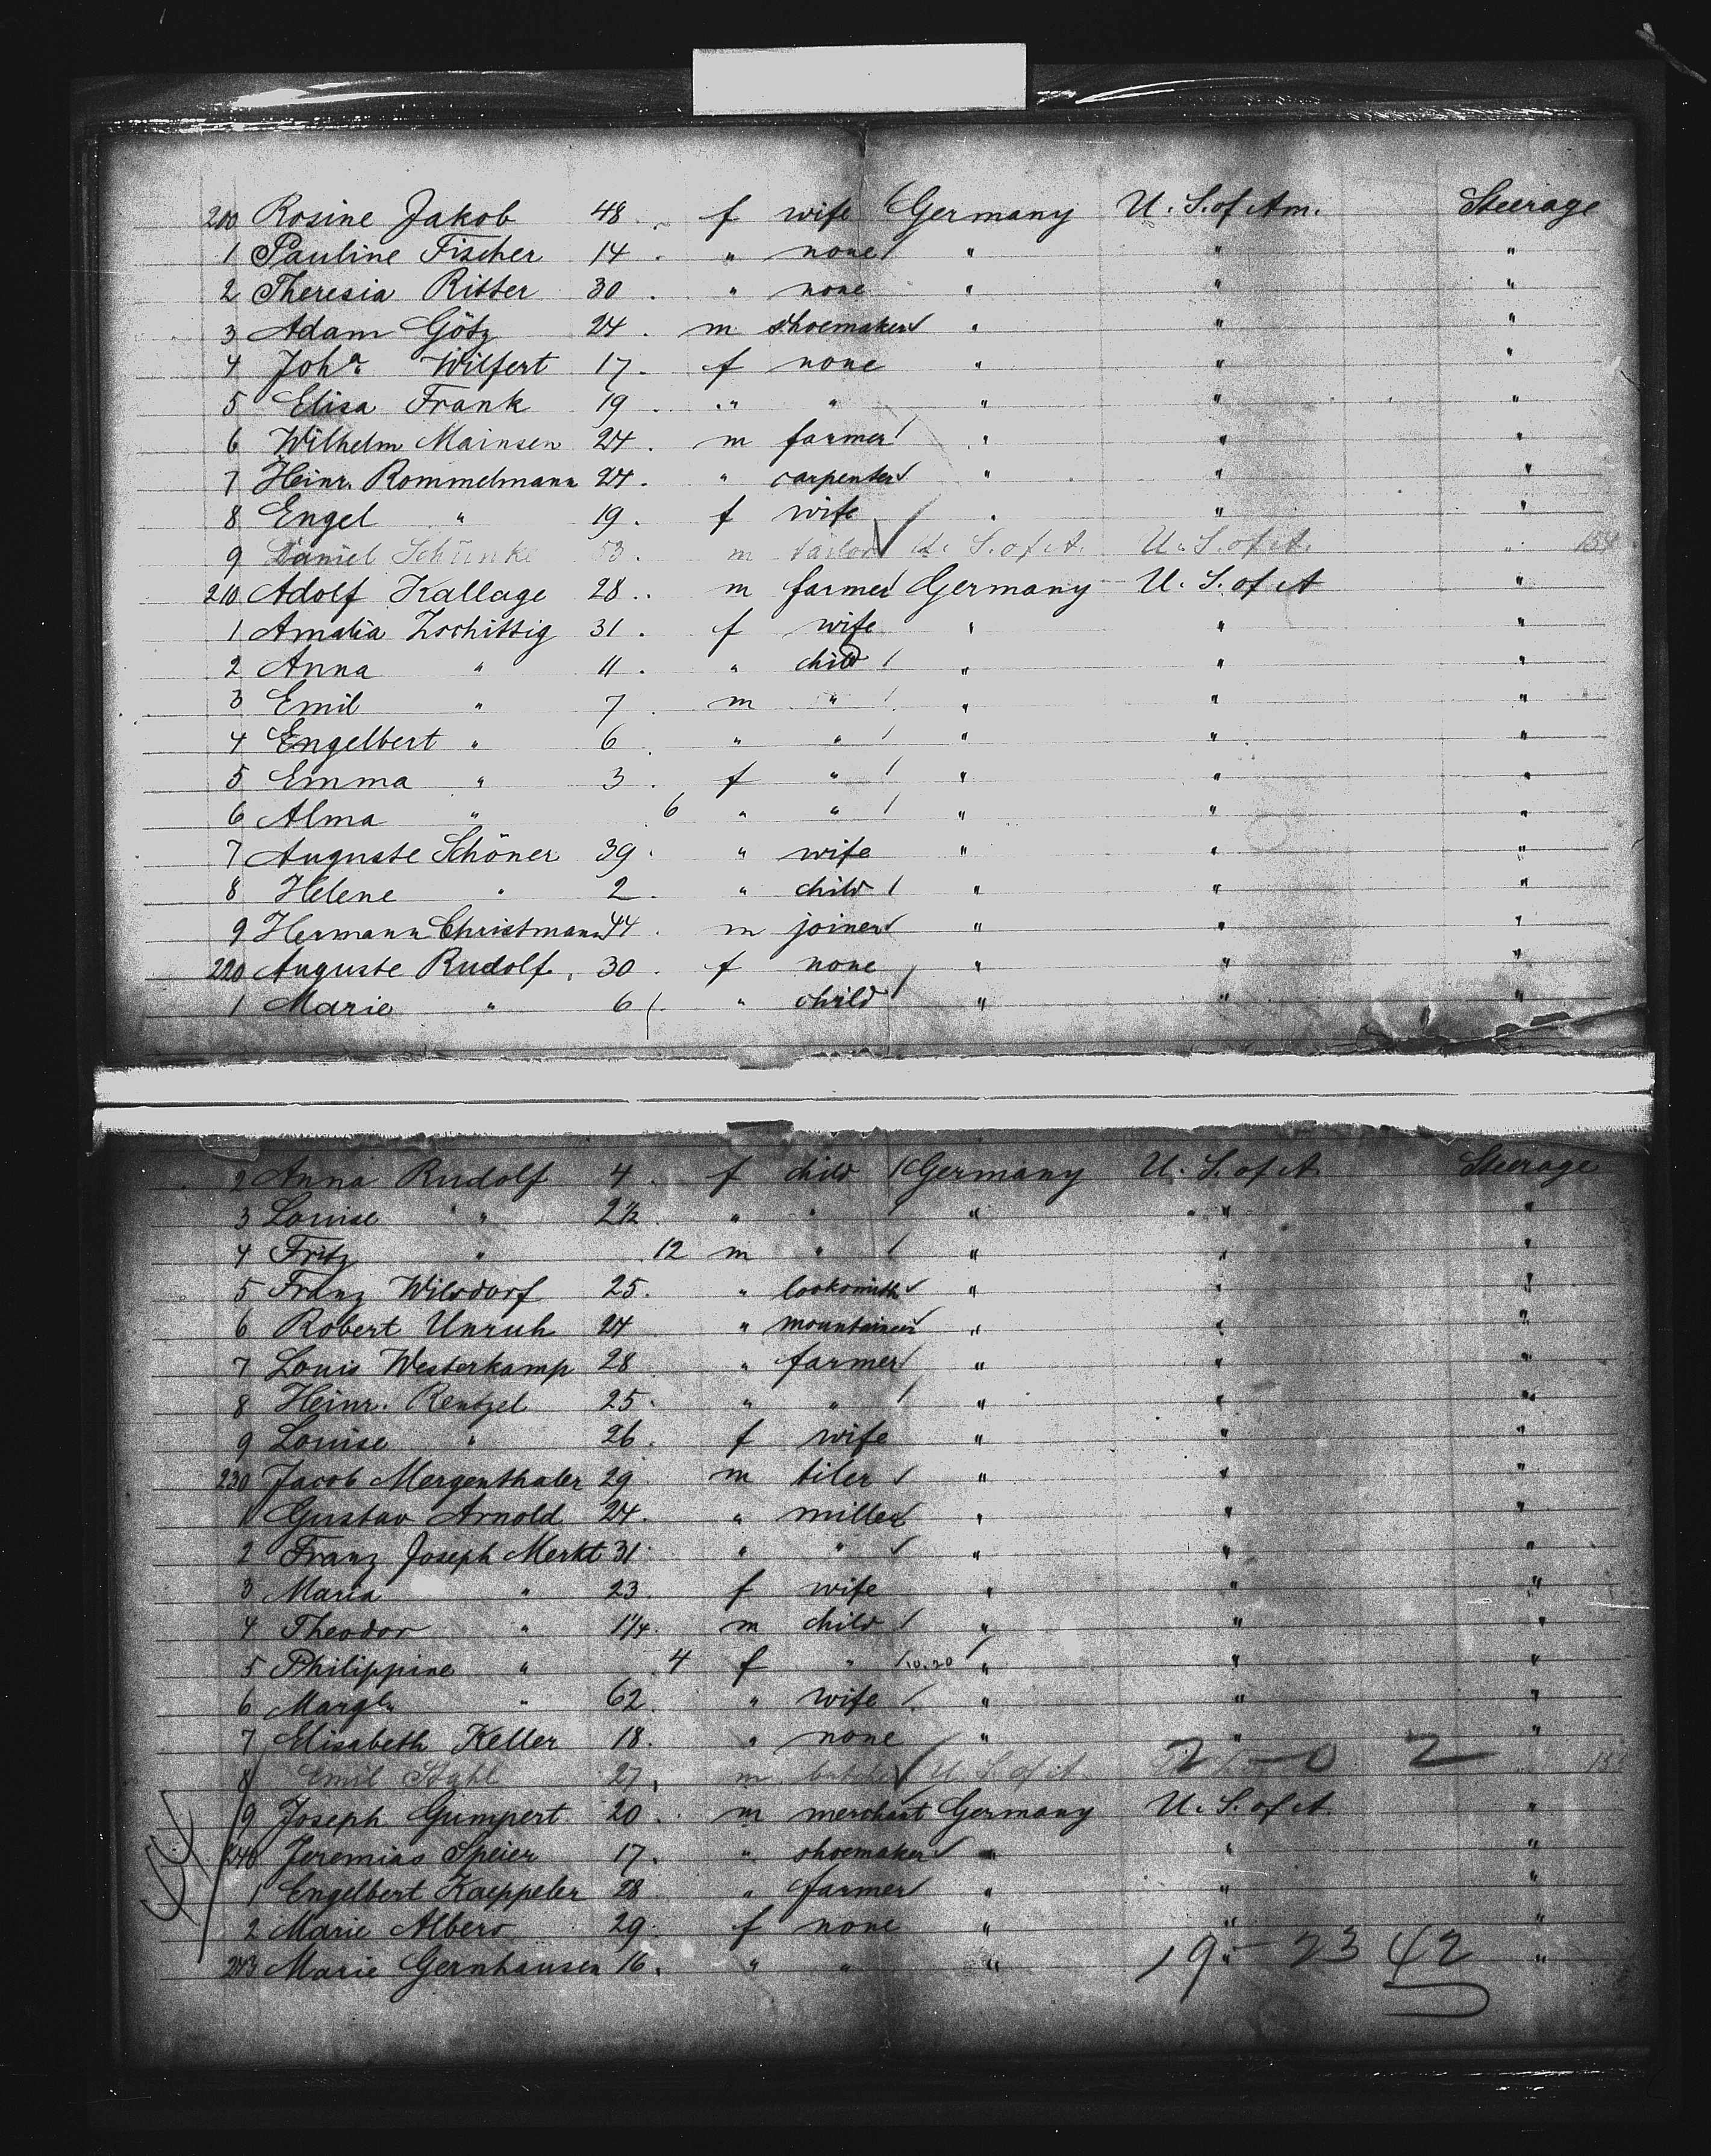 200 Rosine Jakob 48 . f wife Germany U. S. of Am. Steerage
1 Pauline Fischer 14 . " none " " "
2 Theresia Ritter 30 . " none " " "
3 Adam Götz 24 . m shoemaker " " "
4 Joha Wilfert 17 . f none " " "
5 Elisa Frank 19 . " " " " "
6 Wilhelm Mainsen 24 . m farmer " " "
7 Heinr. Rommelmann 24 . " carpenter " " "
8 Engel " 19 . f wife " " "
9 Daniel Schünke 53 . m tailor U. S. of A. U. S. of A. "
210 Adolf Kallage 28 . m farmer Germany U. S. of A "
1 Amalia Zschittig 31 . f wife " " "
2 Anna " 11 . " child " " "
3 Emil " 7 . m " " " "
4 Engelbert " 6 . " " " " "
5 Emma " 3 . f " " " "
6 Alma " 6 " " " " "
7 Auguste Schöner 39 . " wife " " "
8 Helene " 2 . " child " " "
9 Hermann Christmann 44 . m joiner " " "
220 Auguste Rudolf 30 . f none " " "
1 Marie " 6 . " child " " "
2 Anna Rudolf 4 . f child Germany U. S. of A. Steerage
3 Louise " 2 1/2 . " " " " "
4 Fritz " 12 m " " " "
5 Franz Wilsdorf 25 . " locksmith " " "
6 Robert Unruh 24 " mountaineer " " "
7 Louis Westerkamp 28 . " farmer " " "
8 Heinr. Rentzel 25 . " " " " "
9 Louise " 26 . f wife " " "
230 Jacob Mergenthaler 29 m tiler " " "
1 Gustav Arnold 24 . " miller " " "
2 Franz Joseph Merkt 31 . " " " " "
3 Maria " 23 . f wife " " "
4 Theodor " 1 1/4 . m child " " "
5 Philippine " 4 f " " " "
6 Margh " 62 . " wife " " "
7 Elisabeth Keller 18 . " none " " "
8 Emil Stahl 27 . m U. S. of A. 2 - 0 2 "
9 Joseph Gumpert 20 . m merchant Germany U. S. of A. "
240 Jeremias Speier 17 . " shoemaker " " "
1 Engelbert Kaeppeler 28 " farmer " " "
2 Marie Albers 29 . f none " " "
243 Marie Gernhausen 16 . " " " 19 - 23 42 "